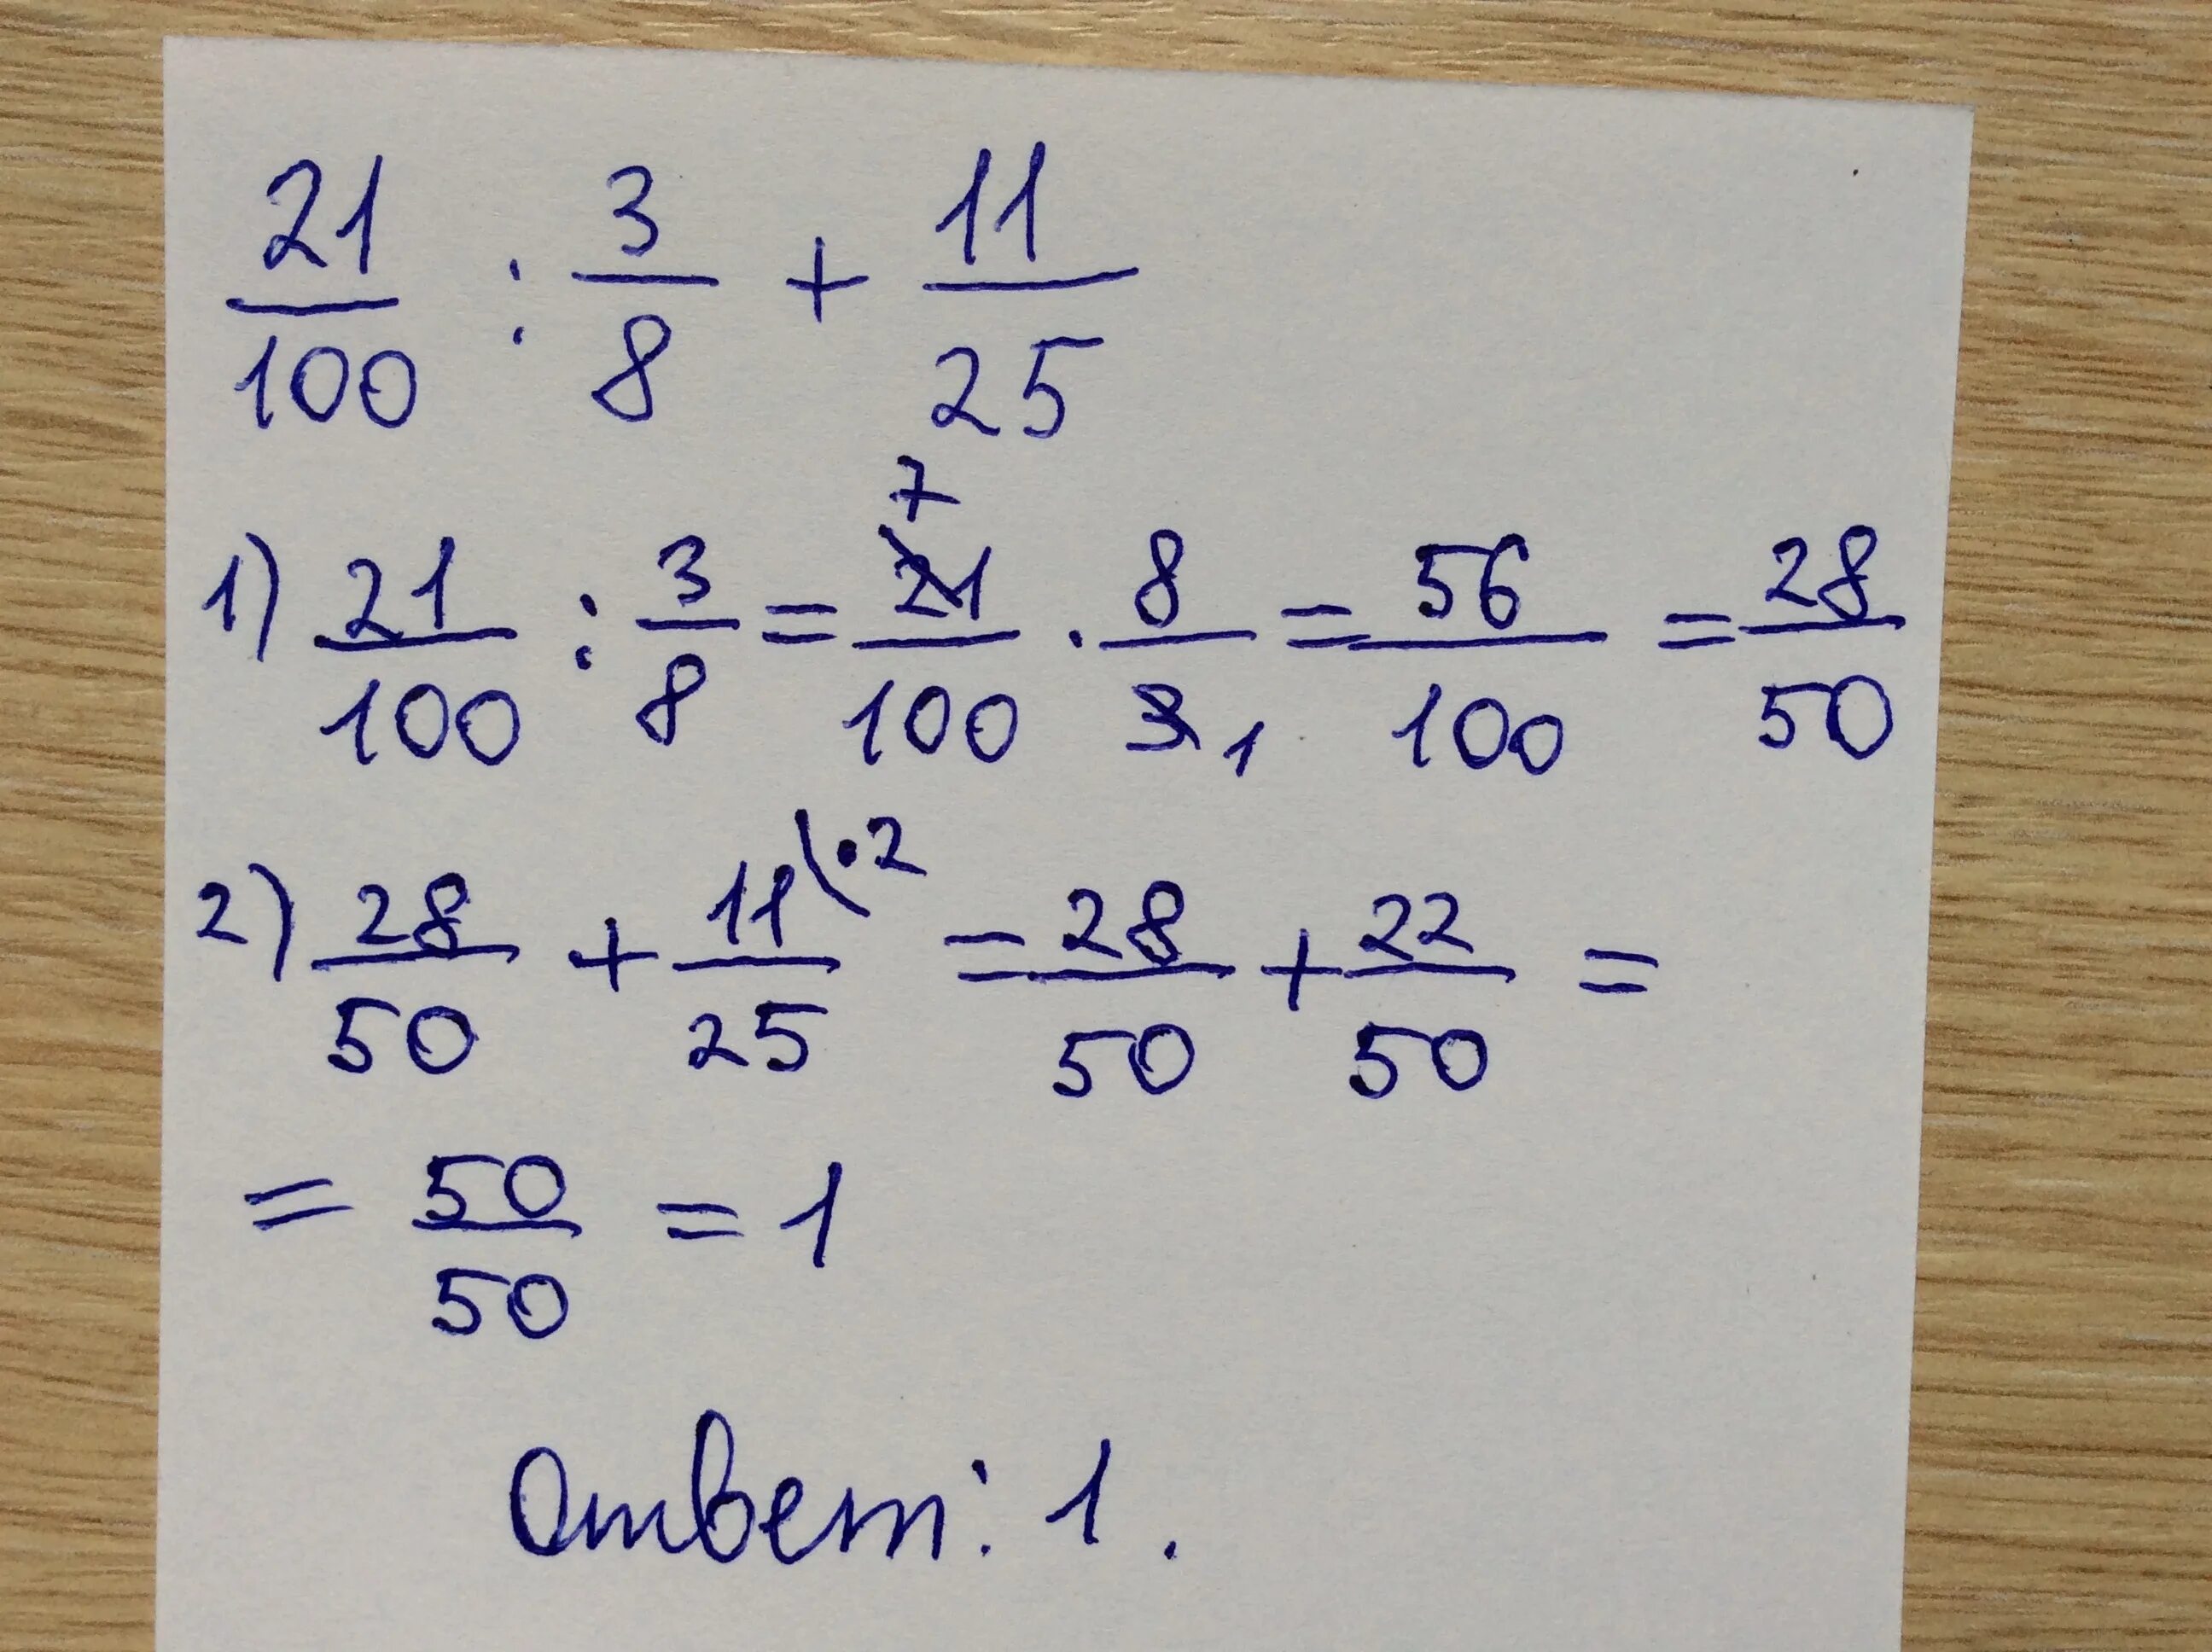 21/100 : 3/8 + 11/25
1) 21/100 : 3/8 = 21/100 7 · 8/3 1 = 56/100 = 28/50
2) 28/50 + 11/25 \·2 = 28/50 + 22/50 =
= 50/50 = 1
Ответ: 1.